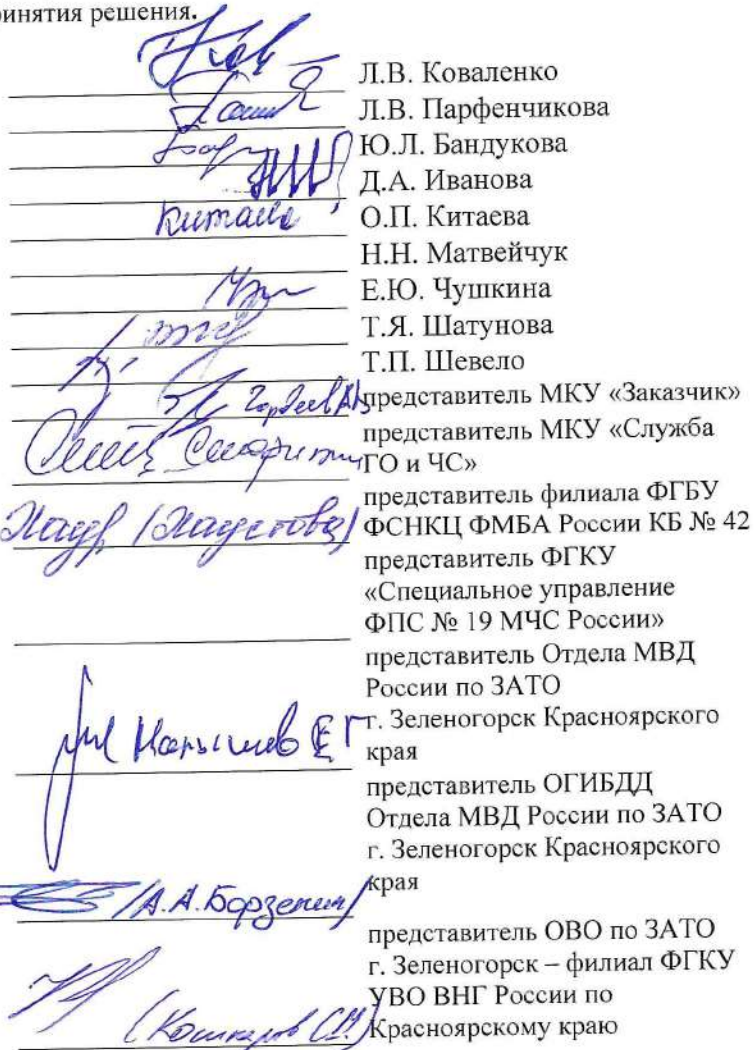 ринятия решения.
Л.В. Коваленко
Л.В. Парфенчикова
Ю.Л. Бандукова
Д.А. Иванова
Китаева О.П. Китаева
Н.Н. Матвейчук
Е.Ю. Чушкина
Т.Я. Шатунова
Т.П. Шевело
представитель МКУ «Заказчик»
представитель МКУ «Служба
ГО и ЧС»
представитель филиала ФГБУ
(Хаустова) ФСНКЦ ФМБА России КБ № 42
представитель ФГКУ
«Специальное управление
ФПС № 19 МЧС России»
представитель Отдела МВД
России по ЗАТО
г. Зеленогорск Красноярского
края
представитель ОГИБДД
Отдела МВД России по ЗАТО
г. Зеленогорск Красноярского
края
/А.А. Борзенин/
представитель ОВО по ЗАТО
г. Зеленогорск – филиал ФГКУ
УВО ВНГ России по
Красноярскому краю